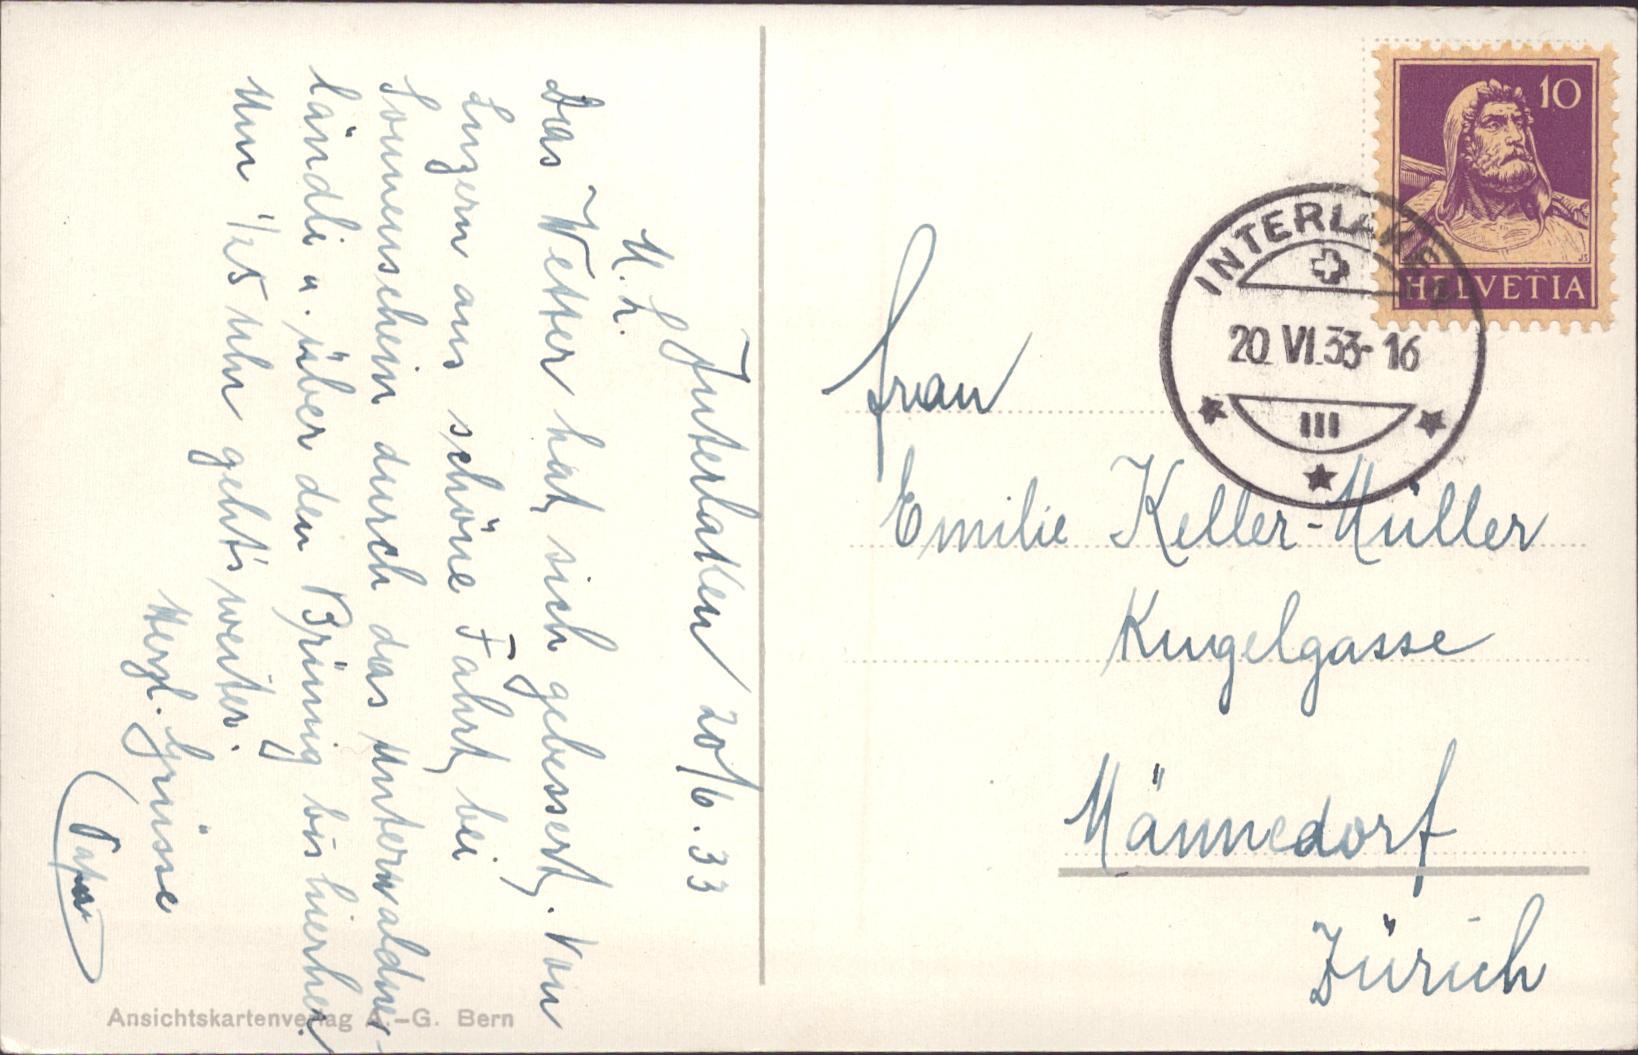 Interlaken 20/6.33
M. L.
Das Wetter hat sich gebessert. Von
Luzern aus schöne Fahrt bei
Sonnenschein durch das Unterwaldner-
ländli u. über den Brünig bis hierher.
Um 1/2 5 Uhr geht's weiter.
Herzl. Grüsse
Papa
Ansichtskartenverlag A.-G. Bern
10
HELVETIA
INTERLAKEN
20. VI. 33-16
III
Frau
Emilie Keller-Müller
Kugelgasse
Männedorf
Zürich